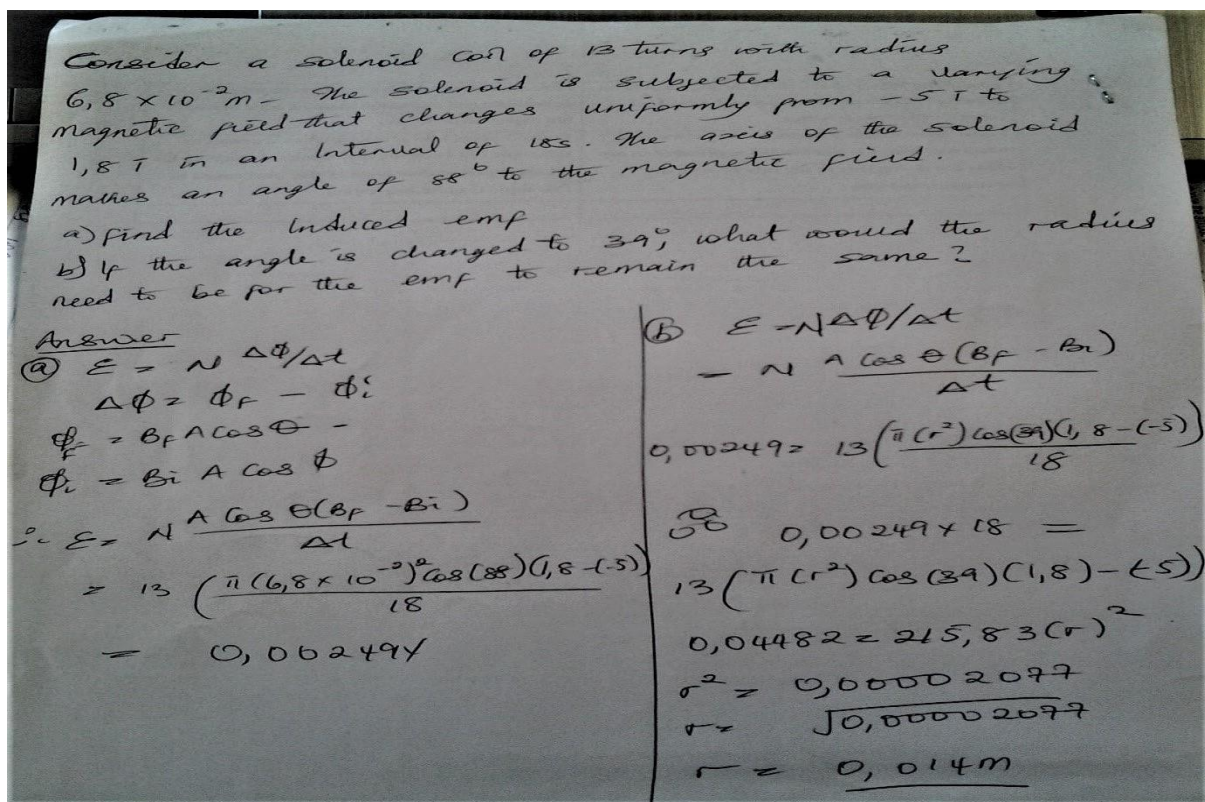 Consider a solenoid coil of 13 turns with radius
6,8 × 10⁻²m - The solenoid is subjected to a varying
magnetic field that changes uniformly from - 5 T to
1,8 T in an Interval of 18s. The axis of the solenoid
makes an angle of 88° to the magnetic field.
a) find the Induced emf
b) If the angle is changed to 39°, what would the radius
need to be for the emf to remain the same?
Answer
(a) ε = N ΔΦ/Δt
ΔΦ = Φ_F - Φ_i
Φ_F = B_F A Cos Θ -
Φ_i = B_i A Cos Φ
∴ ε = N A Cos Θ(B_F - B_i) / Δt
= 13 (π(6,8 × 10⁻²)² Cos(88)(1,8 - (-5)) / 18
= 0,00249V
(b) ε = NΔΦ/Δt
= N A Cos Θ (B_F - B_i) / Δt
0,00249 = 13 (π(r²) Cos(39)(1,8 - (-5)) / 18
0,00249 × 18 =
13 (π (r²) Cos (39) (1,8) - (-5))
0,04482 = 215,83 (r)²
r² = 0,00002077
r = √0,00002077
r = 0,014m